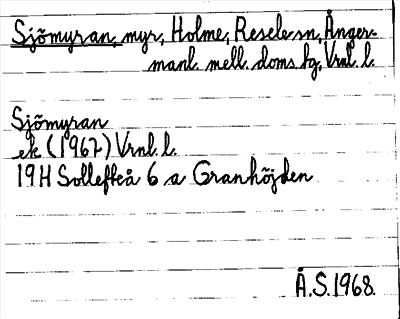 Sjömyran, myr, Holme, Resele sn, Ånger-
manl. mell. doms. hg, Vrnl. l.
Sjömyran
ek (1967) Vrnl. l.
19H Sollefteå 6 a Granhöjden
Å.S. 1968.